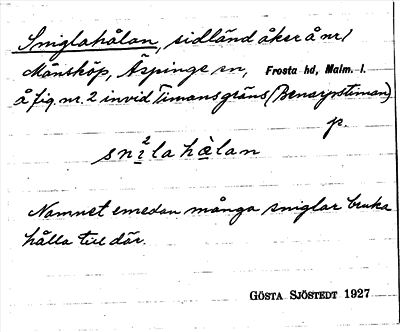 Sniglahålan, sidländ åker å nr 1
Månstorp, Äspinge sn, Frosta hd, Malm. l.
å fig. nr. 2 invid Timans gräns (Benarpstiman)
p.
snìlahålan
Namnet emedan många sniglar bruka
hålla till där.
GÖSTA SJÖSTEDT 1927